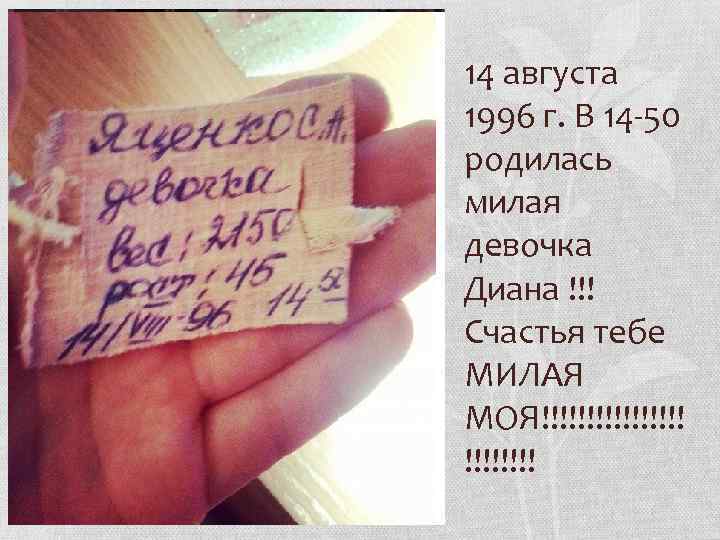 Ященко С.А.
девочка
вес: 2150
рост: 45
14/VIII-96 14 50
14 августа
1996 г. В 14-50
родилась
милая
девочка
Диана !!!
Счастья тебе
МИЛАЯ
МОЯ!!!!!!!!!!!!!!!!
!!!!!!!!